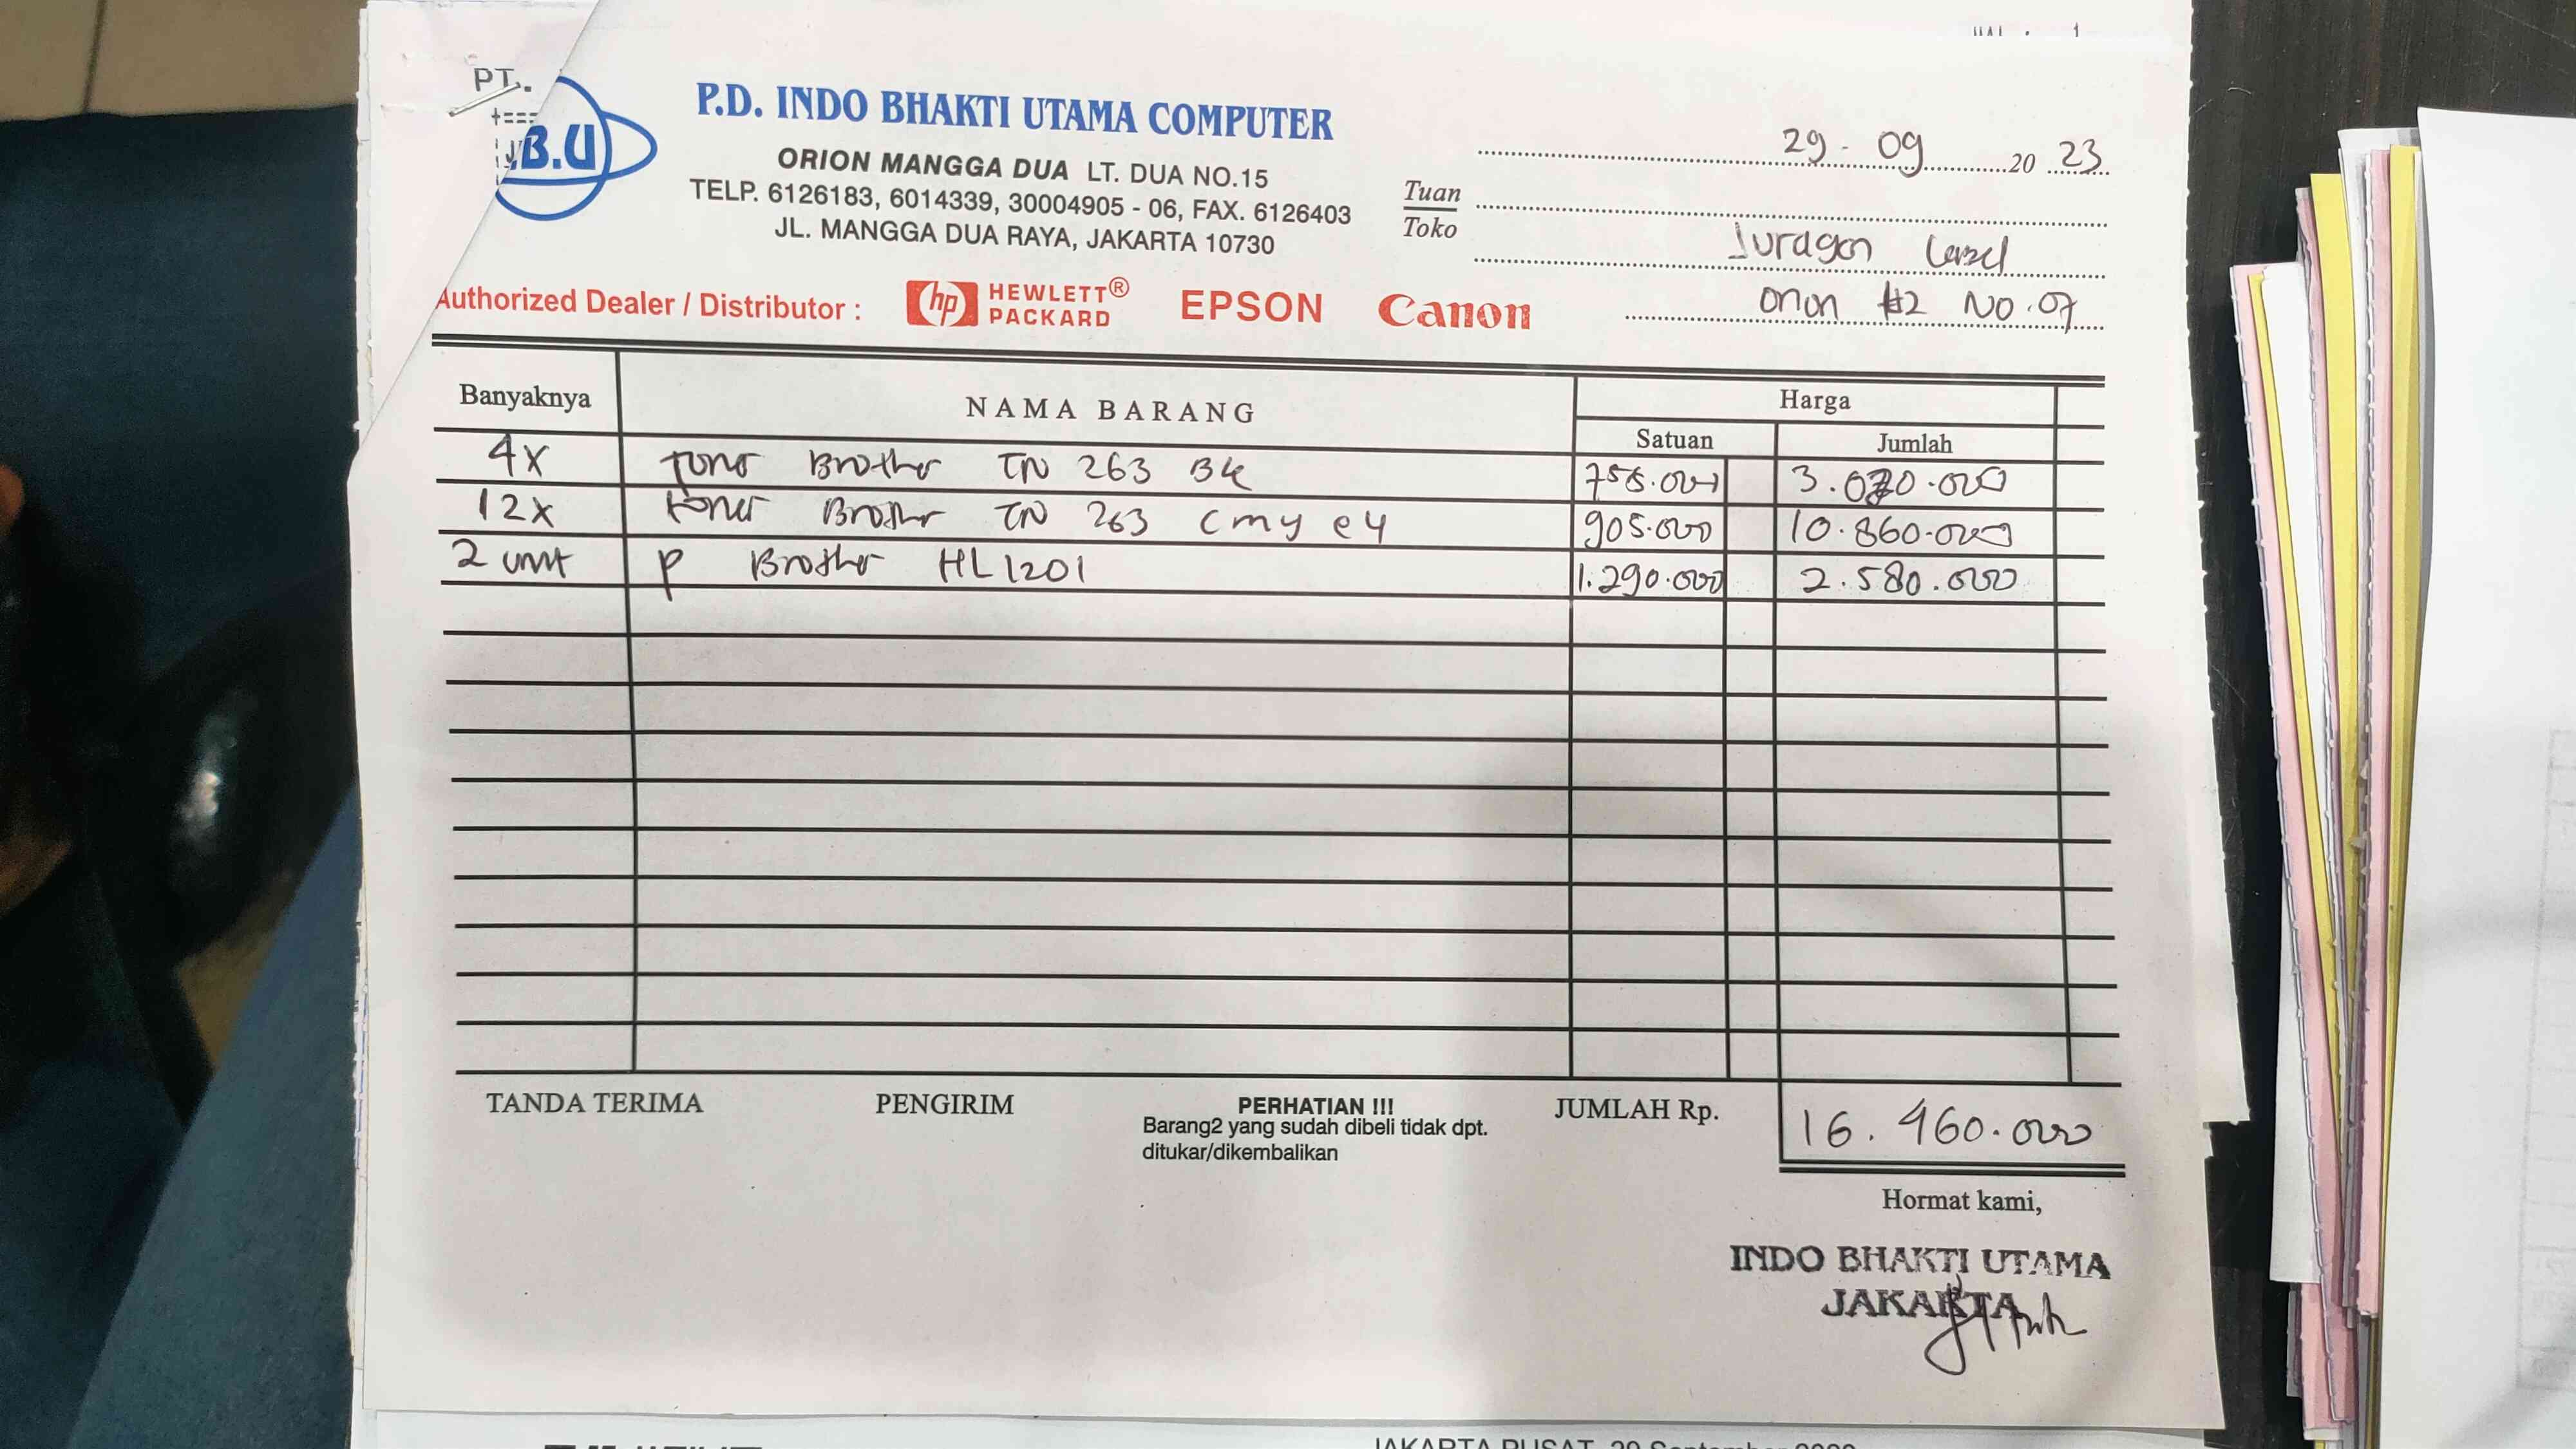 HAL : 1
PT.
I.B.U
P.D. INDO BHAKTI UTAMA COMPUTER
ORION MANGGA DUA LT. DUA NO.15
TELP. 6126183, 6014339, 30004905 - 06, FAX. 6126403
JL. MANGGA DUA RAYA, JAKARTA 10730
29 - 09 20 23
Tuan
Toko
Juragan Lasel
Orion lt2 No.07
Authorized Dealer / Distributor : hp HEWLETT® PACKARD EPSON Canon
Banyaknya NAMA BARANG Harga
Satuan Jumlah
4x toner Brother TN 263 Bk 755.000 3.020.000
12x toner Brother TN 263 cmy e4 905.000 10.860.000
2 unit P Brother HL 1201 1.290.000 2.580.000
TANDA TERIMA PENGIRIM PERHATIAN !!! JUMLAH Rp. 16.460.000
Barang2 yang sudah dibeli tidak dpt.
ditukar/dikembalikan
Hormat kami,
INDO BHAKTI UTAMA
JAKARTA
JAKARTA PUSAT, 29 September 2023